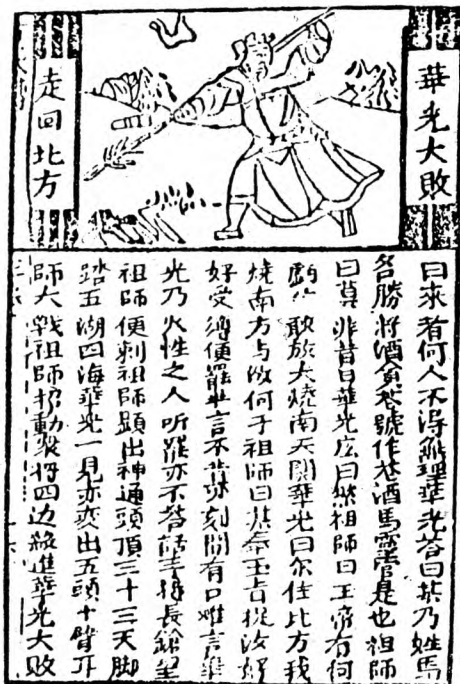 華光大敗
走回北方
曰來者何人不得無理華光答曰某乃姓馬
名勝將酒為花號作花酒馬靈官是也祖師
曰莫非昔日華光広曰然祖師曰玉帝有何
虧你敢放火燒南天關華光曰尔住北方我
燒南方与你何干祖師曰我奉玉旨捉汝好
好受縛便罷半言不肯頃刻間有口难言華
光乃火性之人听罷亦不答話手持長鎗望
祖師便刺祖師顕出神通頭頂三十三天脚
踏五湖四海華光一見亦変出五頭十臂
師大戰祖師招動衆將四边殺進華光大敗